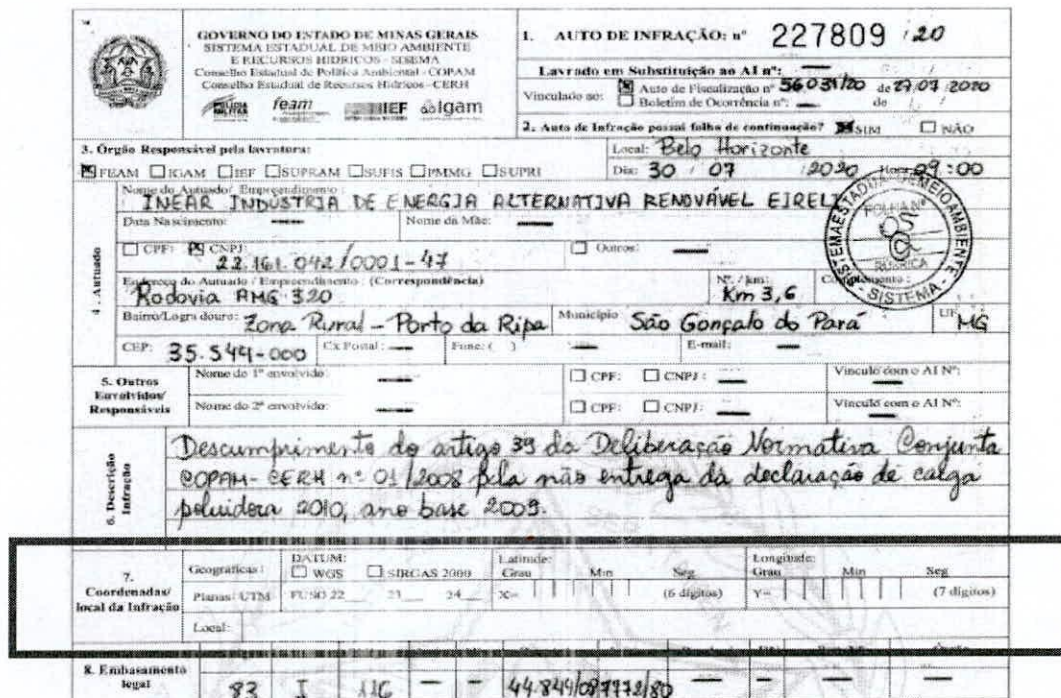 GOVERNO DO ESTADO DE MINAS GERAIS
SISTEMA ESTADUAL DE MEIO AMBIENTE
E RECURSOS HÍDRICOS - SISEMA
Conselho Estadual de Política Ambiental - COPAM
Conselho Estadual de Recursos Hídricos - CERH
feam IEF igam
1. AUTO DE INFRAÇÃO: nº 227809 /20
Lavrado em Substituição ao AI nº: —
Vinculado ao: Auto de Fiscalização nº 56031/20 de 27/07/2020
Boletim de Ocorrência nº: — de
2. Auto de Infração possui folha de continuação? SIM NÃO
3. Órgão Responsável pela lavratura:
FEAM IGAM IEF SUPRAM SUFIS PMMG SUPRI
Local: Belo Horizonte
Dia: 30 / 07 /2020 Hora: 09:00
4. Autuado
Nome do Autuado/ Empreendimento:
INEAR INDÚSTRIA DE ENERGIA ALTERNATIVA RENOVÁVEL EIRELI
SISTEMA ESTADUAL DE MEIO AMBIENTE
FOLHA Nº
RUBRICA
SISTEMA
Data Nascimento: — Nome da Mãe: —
CPF: CNPJ: 22.161.042/0001-47 Outros: —
Endereço do Autuado / Empreendimento: (Correspondência) Nº. / km: Complemento:
Rodovia AMG 320 Km 3,6
Bairro/Logradouro: Zona Rural - Porto da Ripa Município: São Gonçalo do Pará UF: MG
CEP: 35.544-000 Cx Postal: — Fone: ( ) — E-mail: —
5. Outros Envolvidos/ Responsáveis
Nome do 1º envolvido: — CPF: CNPJ: — Vínculo com o AI Nº: —
Nome do 2º envolvido: — CPF: CNPJ: — Vínculo com o AI Nº: —
6. Descrição Infração
Descumprimento do artigo 39 da Deliberação Normativa Conjunta
COPAM-CERH nº 01/2008 pela não entrega da declaração de carga
poluidora 2010, ano base 2009.
7. Coordenadas/ local da Infração
Geográficas: DATUM: WGS SIRGAS 2000 Latitude: Grau Min Seg Longitude: Grau Min Seg
Planas: UTM FUSO 22 23 24 X= (6 dígitos) Y= (7 dígitos)
Local:
8. Embasamento legal
83 I 116 — — 44.844/08 7772/80 — — — —